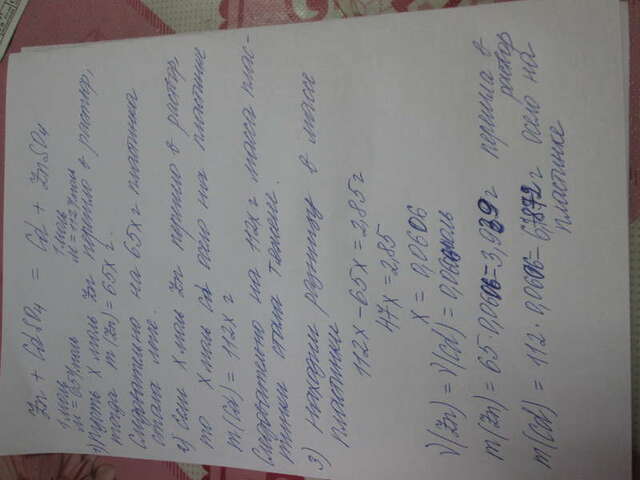 Zn + CdSO4 = Cd + ZnSO4
1 моль 1 моль
M = 65 г/моль M = 112 г/моль
1) Пусть x моль Zn перешло в раствор,
тогда m(Zn) = 65x г.
Следовательно на 65x г пластинка
стала легче.
2) если x моль Zn перешло в раствор
то x моль Cd осело на пластине
m(Cd) = 112x г
Следовательно на 112x г масса плас-
тинки стала тяжелее.
3) Находим разницу в массе
пластинки
112x - 65x = 2,85 г
47x = 2,85
x = 0,0606
ν(Zn) = ν(Cd) = 0,0606 моль
m(Zn) = 65 · 0,0606 = 3,939 г перешло в
раствор
m(Cd) = 112 · 0,0606 = 6,7872 г осело на
пластинке